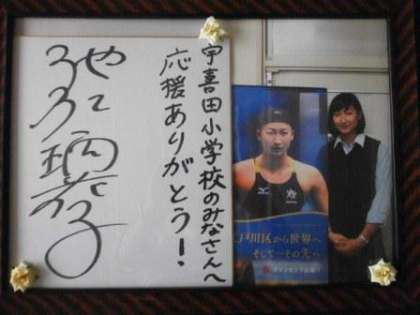 宇喜田小学校のみなさんへ
応援ありがとう！
池江
璃花子
戸川区から世界へ
そして…その先へ